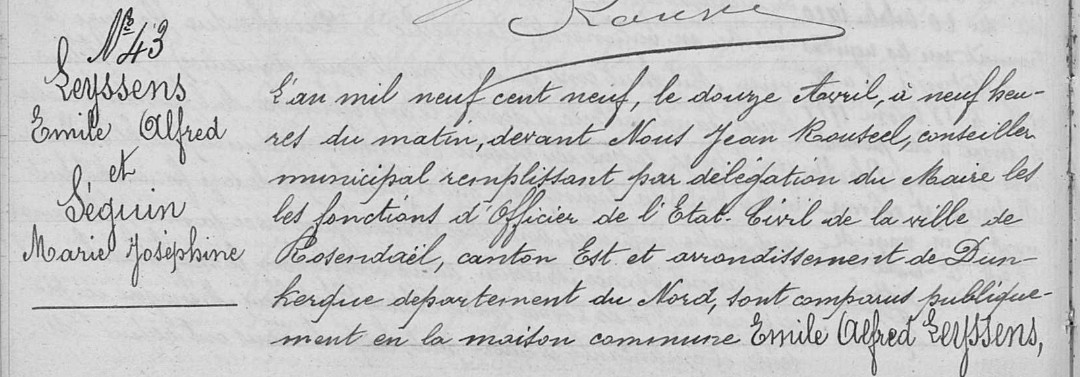 Nº 43
Leyssens
Emile Alfred
et
Séguin
Marie Joséphine
L'an mil neuf cent neuf, le douze Avril, à neuf heu-
res du matin, devant Nous Jean Rouseel, conseiller
municipal remplissant par délégation du Maire les
les fonctions d'Officier de l'Etat-Civil de la ville de
Rosendaël, canton Est et arrondissement de Dun-
kerque département du Nord, sont comparus publique-
ment en la maison commune Emile Alfred Leyssens,